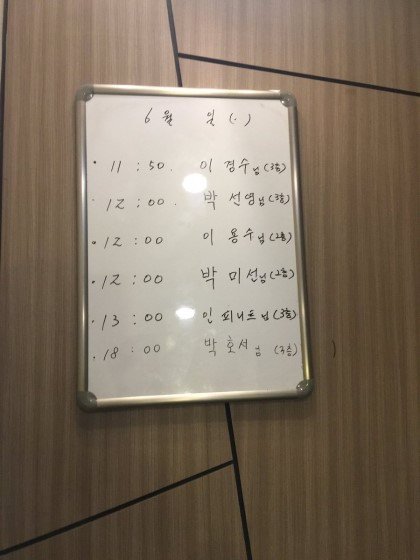 6월 일(.)
· 11 : 50. 이 경수님(3층)
· 12 : 00. 박 선영님(3층)
· 12 : 00 이 용수님(2층)
· 12 : 00 박 미선님(2층)
· 13 : 00 인 피니트님(3층)
· 18 : 00 박 호셔님 (3층)